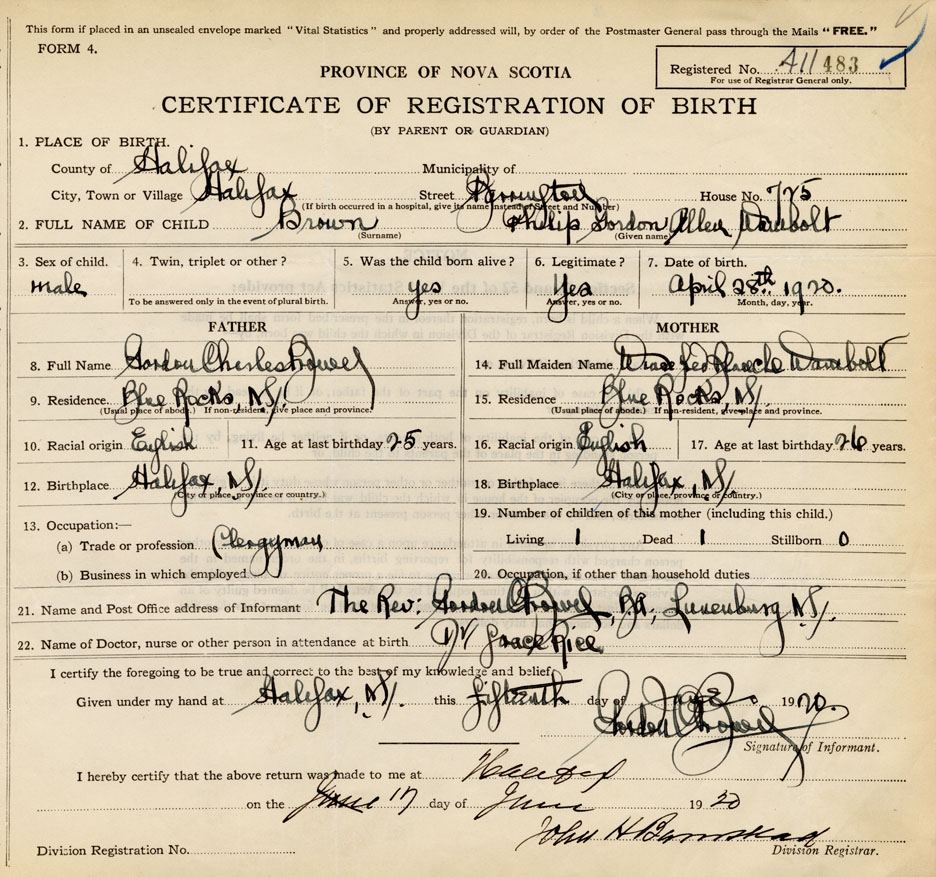 This form if placed in an unsealed envelope marked "Vital Statistics" and properly addressed will, by order of the Postmaster General pass through the Mails "FREE."
FORM 4.
Registered No. 411 483
For use of Registrar General only.
PROVINCE OF NOVA SCOTIA
CERTIFICATE OF REGISTRATION OF BIRTH
(BY PARENT OR GUARDIAN)
1. PLACE OF BIRTH.
County of Halifax Municipality of
City, Town or Village Halifax Street House No. 725
(If birth occurred in a hospital, give its name instead of Street and Number)
2. FULL NAME OF CHILD Brown Philip Gordon Allen Wambolt
(Surname) (Given name)
3. Sex of child. 4. Twin, triplet or other? 5. Was the child born alive? 6. Legitimate? 7. Date of birth.
male yes Yes April 28th 1920.
To be answered only in the event of plural birth. Answer, yes or no. Answer, yes or no. Month, day, year.
FATHER MOTHER
8. Full Name Gordon Charles Brown 14. Full Maiden Name Blanche Wambolt
9. Residence Blue Rocks, N.S. 15. Residence Blue Rocks, N.S.
(Usual place of abode.) If non-resident, give place and province. (Usual place of abode.) If non-resident, give place and province.
10. Racial origin English 11. Age at last birthday 25 years. 16. Racial origin English 17. Age at last birthday 26 years.
12. Birthplace Halifax, N.S. 18. Birthplace Halifax, N.S.
(City or place, province or country.) (City or place, province or country.)
13. Occupation:— 19. Number of children of this mother (including this child.)
(a) Trade or profession Clergyman Living 1 Dead 1 Stillborn 0
(b) Business in which employed 20. Occupation, if other than household duties
21. Name and Post Office address of Informant The Rev: Gordon C Brown, B.A., Lunenburg N.S.
22. Name of Doctor, nurse or other person in attendance at birth Dr Grace Rice
I certify the foregoing to be true and correct to the best of my knowledge and belief.
Given under my hand at Halifax, N.S. this fifteenth day of June 1920.
Gordon C Brown
Signature of Informant.
I hereby certify that the above return was made to me at Halifax
on the June 17 day of June 1920
John H Barnstead
Division Registration No. Division Registrar.